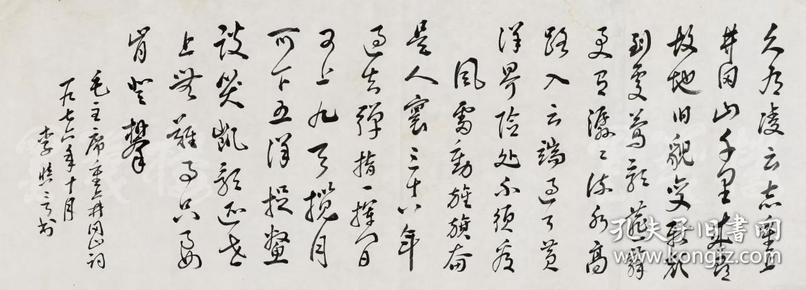 久有凌云志重上
井冈山千里来寻
故地旧貌变新颜
到处莺歌燕舞
更有潺潺流水高
路入云端过了黄
洋界险处不须看
風雷動旌旗奋
是人寰三十八年
过去弹指一挥间
可上九天揽月
可下五洋捉鳖
谈笑凯歌还世
上无难事只要
肯登攀
毛主席重上井冈山词
一九七六年十月
李书
孔夫子旧书网
www.kongfz.com